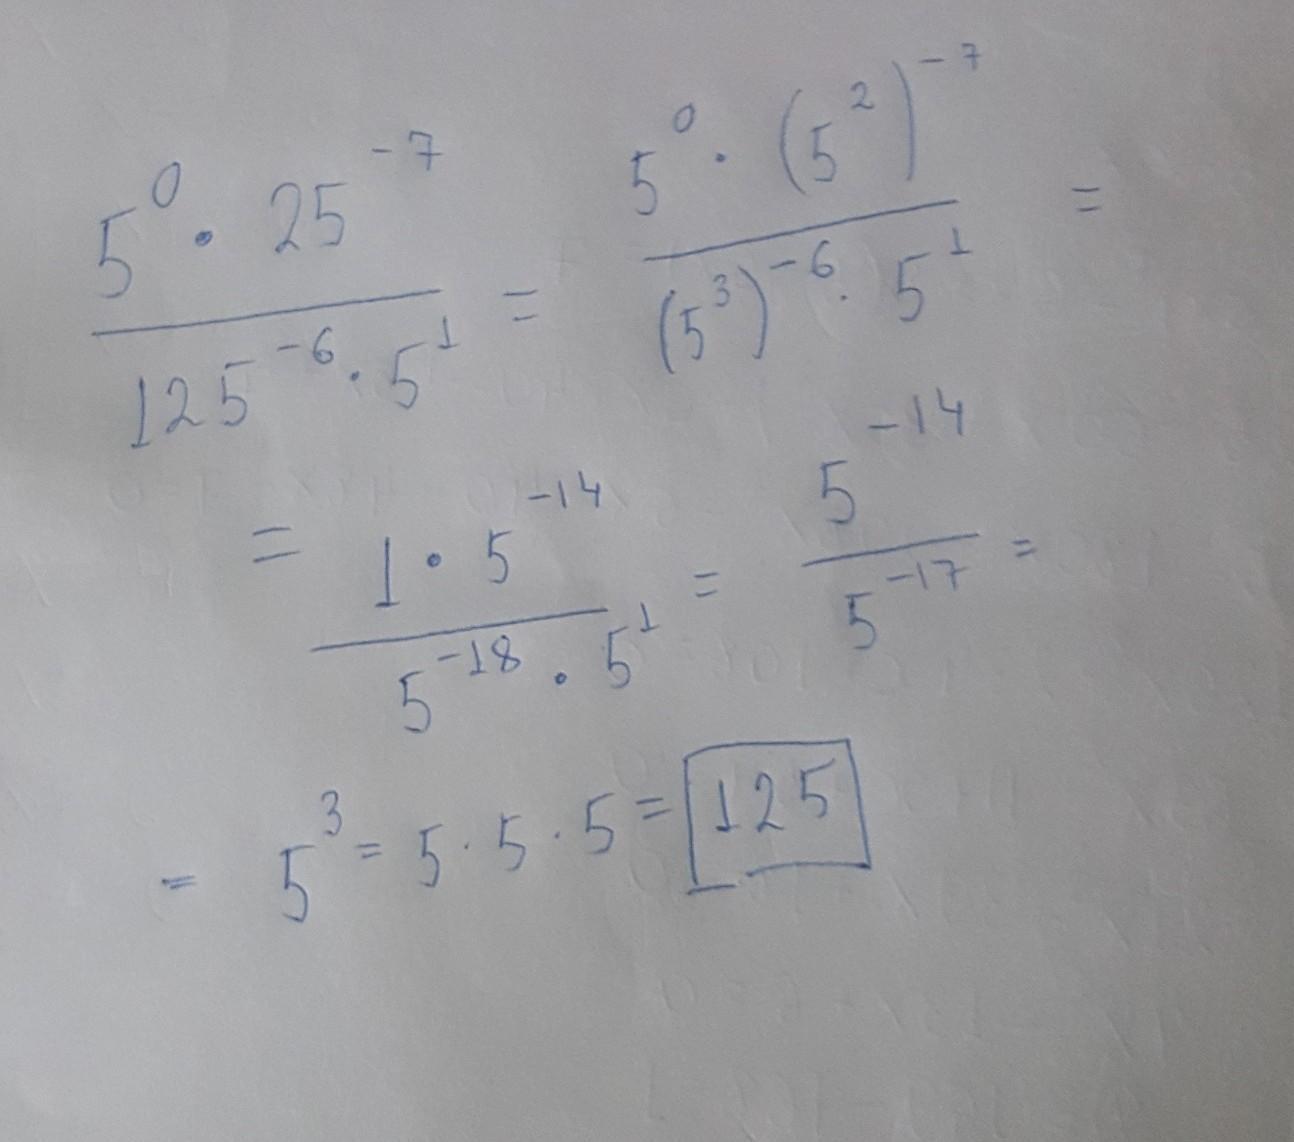 5⁰ · 25⁻⁷ / 125⁻⁶ · 5¹ = 5⁰ · (5²)⁻⁷ / (5³)⁻⁶ · 5¹ =
= 1 · 5⁻¹⁴ / 5⁻¹⁸ · 5¹ = 5⁻¹⁴ / 5⁻¹⁷ =
= 5³ = 5 · 5 · 5 = 125